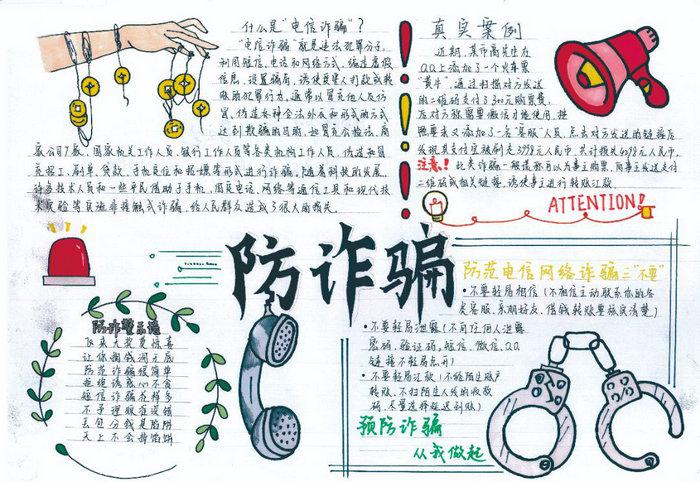 什么是“电信诈骗”？
“电信诈骗”就是违法犯罪分子，
利用短信、电话和网络方式，编造虚假
信息，设置骗局，诱使受害人打款或转
账的犯罪行为，通常以冒充他人及仿
冒、伪造各种合法外衣和形式的方式
达到欺骗的目的，如冒充公检法、商
家公司厂家、国家机关工作人员、银行工作人员等各类机构工作人员，伪造和冒
充招工、刷单、贷款、手机定位和招嫖等形式进行诈骗，随着科技的发展，
许多技术人员和一些平民借助于手机、固定电话、网络等通信工具和现代技
术实验等实施非接触式诈骗，给人民群众造成了很大的损失。
真实案例
近期，某市高先生在
QQ上添加了一个火车票
“黄牛”，通过扫描对方发送
的二维码支付了300元购票费，
后对方称需要激活才能使用，按
照要求又添加了一名“客服”人员，点击对方发送的链接后
发现其支付宝被刷走3798元人民币，共计损失4098元人民币。
注意！此类诈骗一般谎称可以为事主购票，向事主发送支付
二维码或相关链接，诱使事主进行转账汇款。
ATTENTION！
防诈骗
防诈警示语
飞来大奖莫惊喜
让你掏钱洞无底
防范诈骗很简单
拒绝诱惑心不贪
短信诈骗花样多
不予理睬准没错
丢包分钱是陷阱
天上不会掉馅饼
防范电信网络诈骗三“不要”
·不要轻易相信（不相信主动联系你的各
类客服、亲朋好友，借钱转账要核实清楚）
·不要轻易泄露（不向任何人泄露
密码、验证码，短信、微信、QQ
链接不轻易点开）
·不要轻易汇款（不给陌生账户
转账，不扫陌生人发的收款
码，尽量选择延迟到账）
预防诈骗
从我做起